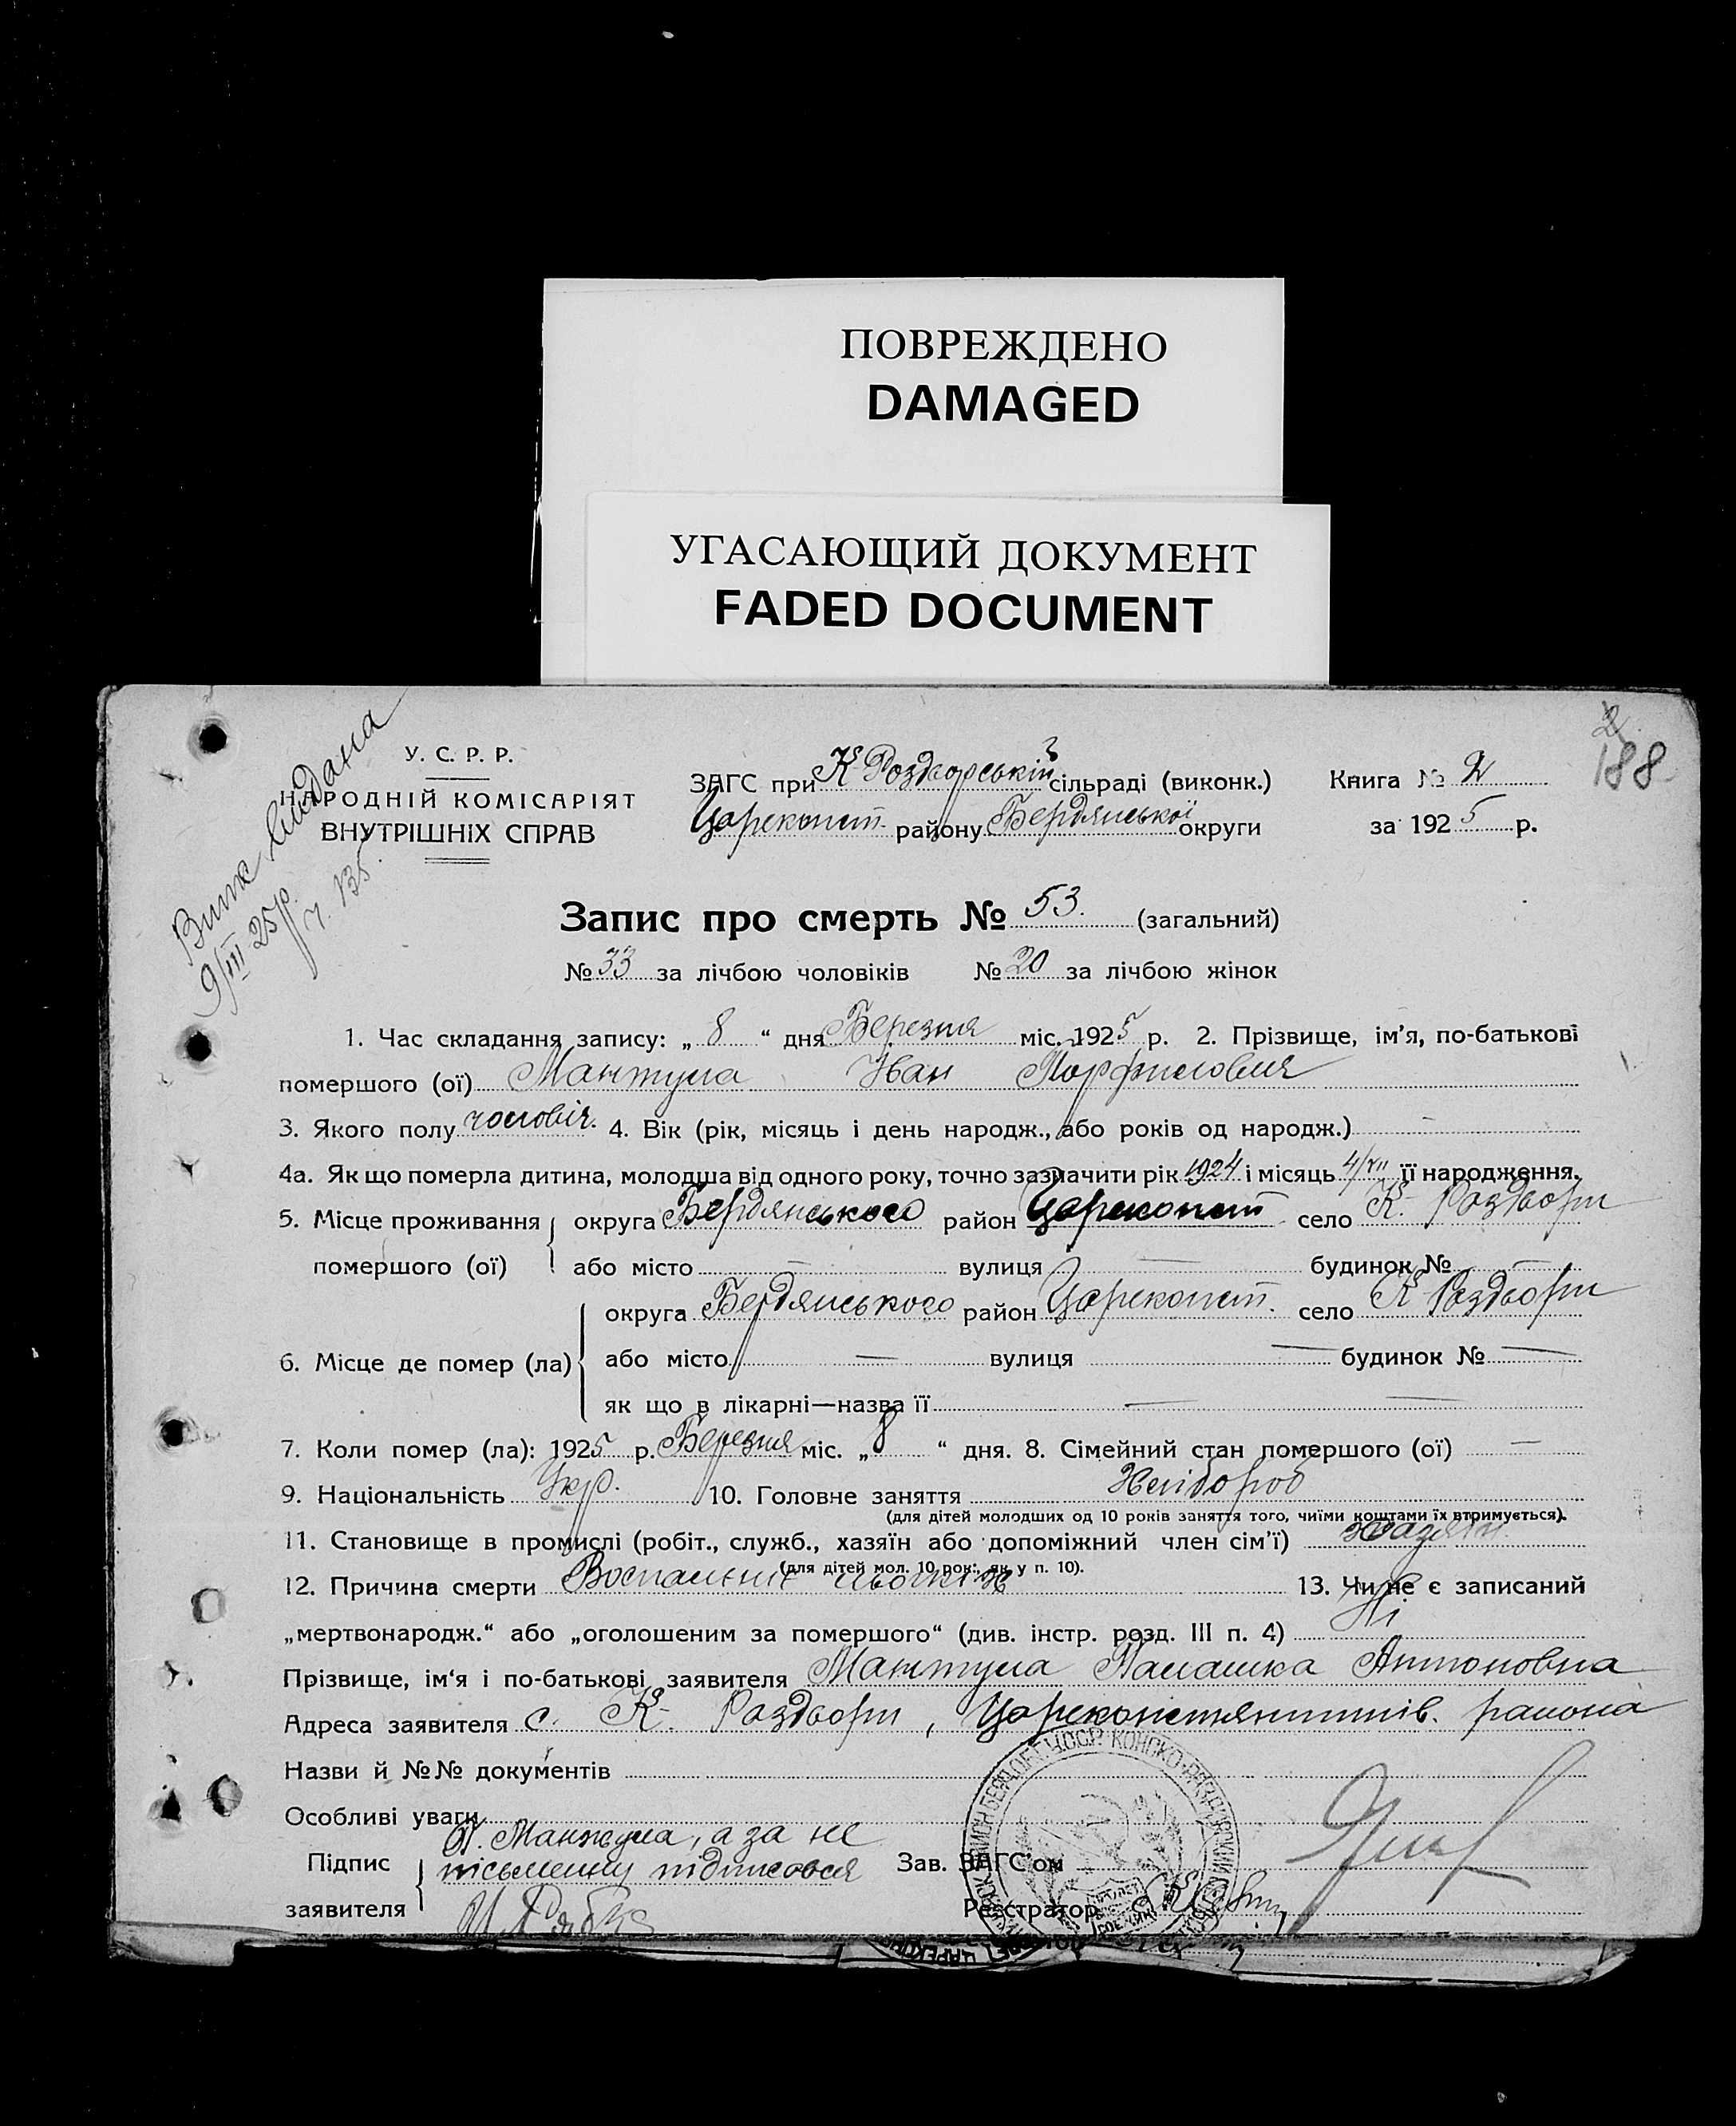 ПОВРЕЖДЕНО
DAMAGED
УГАСАЮЩИЙ ДОКУМЕНТ
FADED DOCUMENT
2
188
Випис видана
9/III 25р.
ч. 135
У. С. Р. Р.
НАРОДНІЙ КОМІСАРІЯТ
ВНУТРІШНІХ СПРАВ
ЗАГС при К Роздорській сільраді (виконк.) Книга № 2
Цареконст. району Бердянської округи за 1925 р.
Запис про смерть № 53. (загальний)
№ 33 за лічбою чоловіків № 20 за лічбою жінок
1. Час складання запису: „ 8 “ дня Березня міс. 1925 р. 2. Прізвище, ім’я, по-батькові
помершого (ої) Манжула Іван Порфилович
3. Якого полу чоловіч. 4. Вік (рік, місяць і день народж., або років од народж.) —
4а. Як що померла дитина, молодша від одного року, точно зазначити рік 1924 і місяць 4/VII її народження.
5. Місце проживання округа Бердянського район Цареконст село К. Роздори
помершого (ої) або місто — вулиця — будинок № —
округа Бердянського район Цареконст. село К Роздори
6. Місце де помер (ла) або місто — вулиця — будинок № —
як що в лікарні—назва її — —
7. Коли помер (ла): 1925 р. Березня міс. „ 8 “ дня. 8. Сімейний стан помершого (ої) —
9. Національність Укр. 10. Головне заняття Хлібороб
(для дітей молодших од 10 років заняття того, чиїми коштами їх втримується).
11. Становище в промислі (робіт., служб., хазяїн або допоміжний член сім’ї) хазяїн
(для дітей мол. 10 рок., як у п. 10).
12. Причина смерти 13. Чи не є записаний
„мертвонародж.“ або „оголошеним за помершого“ (див. інстр. розд. III п. 4) Ні
Прізвище, ім‘я і по-батькові заявителя Манжула Палашка Антоновна
Адреса заявителя с. К. Роздори, района
Назви й №№ документів
Особливі уваги
П. Манжула, а за не
Підпис письменну підписався
заявителя
Зав. ЗАГС’ом
Реєстратор